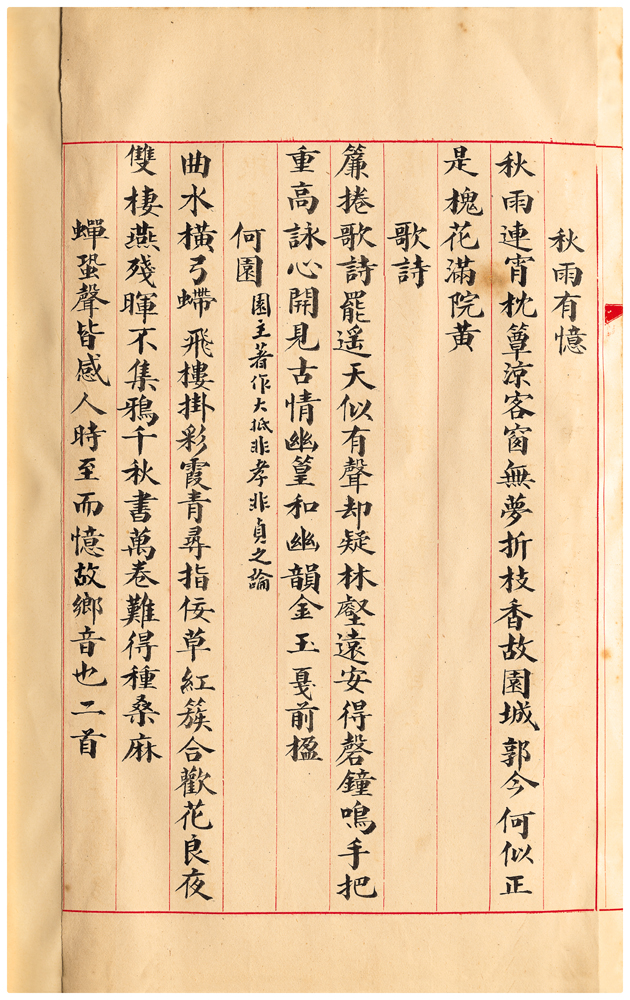 秋雨有憶
秋雨連宵枕簟涼客窗無夢折枝香故園城郭今何似正
是槐花滿院黃
歌詩
簾捲歌詩罷遥天似有聲却疑林壑遠安得磬鐘鳴手把
重高詠心開見古情幽篁和幽韻金玉戛前楹
何園園主著作大抵非孝非貞之論
曲水橫弓蠕飛樓掛彩霞青尋指佞草紅簇合歡花良夜
雙棲燕殘暉不集鴉千秋書萬卷難得種桑麻
蟬蛩聲皆感人時至而憶故鄉音也二首